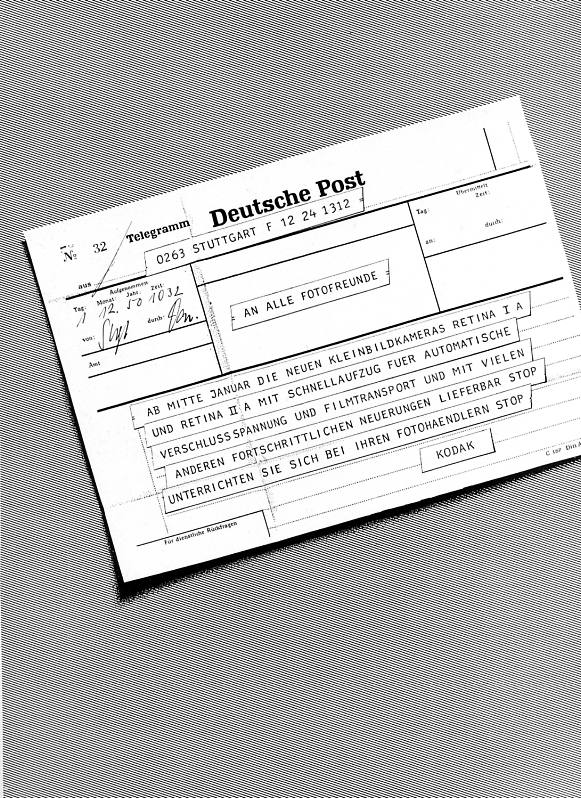 Deutsche Post
Telegramm
№ 32
0263 STUTTGART F 12 24 1312 =
aus
Aufgenommen
Tag: Monat: Jahr: Zeit:
1 12. 50 1032
von: durch:
Amt
Übermittelt
Zeit:
Tag:
an: durch:
= AN ALLE FOTOFREUNDE =
AB MITTE JANUAR DIE NEUEN KLEINBILDKAMERAS RETINA I A
UND RETINA II A MIT SCHNELLAUFZUG FUER AUTOMATISCHE
VERSCHLUSSSPANNUNG UND FILMTRANSPORT UND MIT VIELEN
ANDEREN FORTSCHRITTLICHEN NEUERUNGEN LIEFERBAR STOP
UNTERRICHTEN SIE SICH BEI IHREN FOTOHAENDLERN STOP
KODAK
Für dienstliche Rückfragen
C 187 Din A